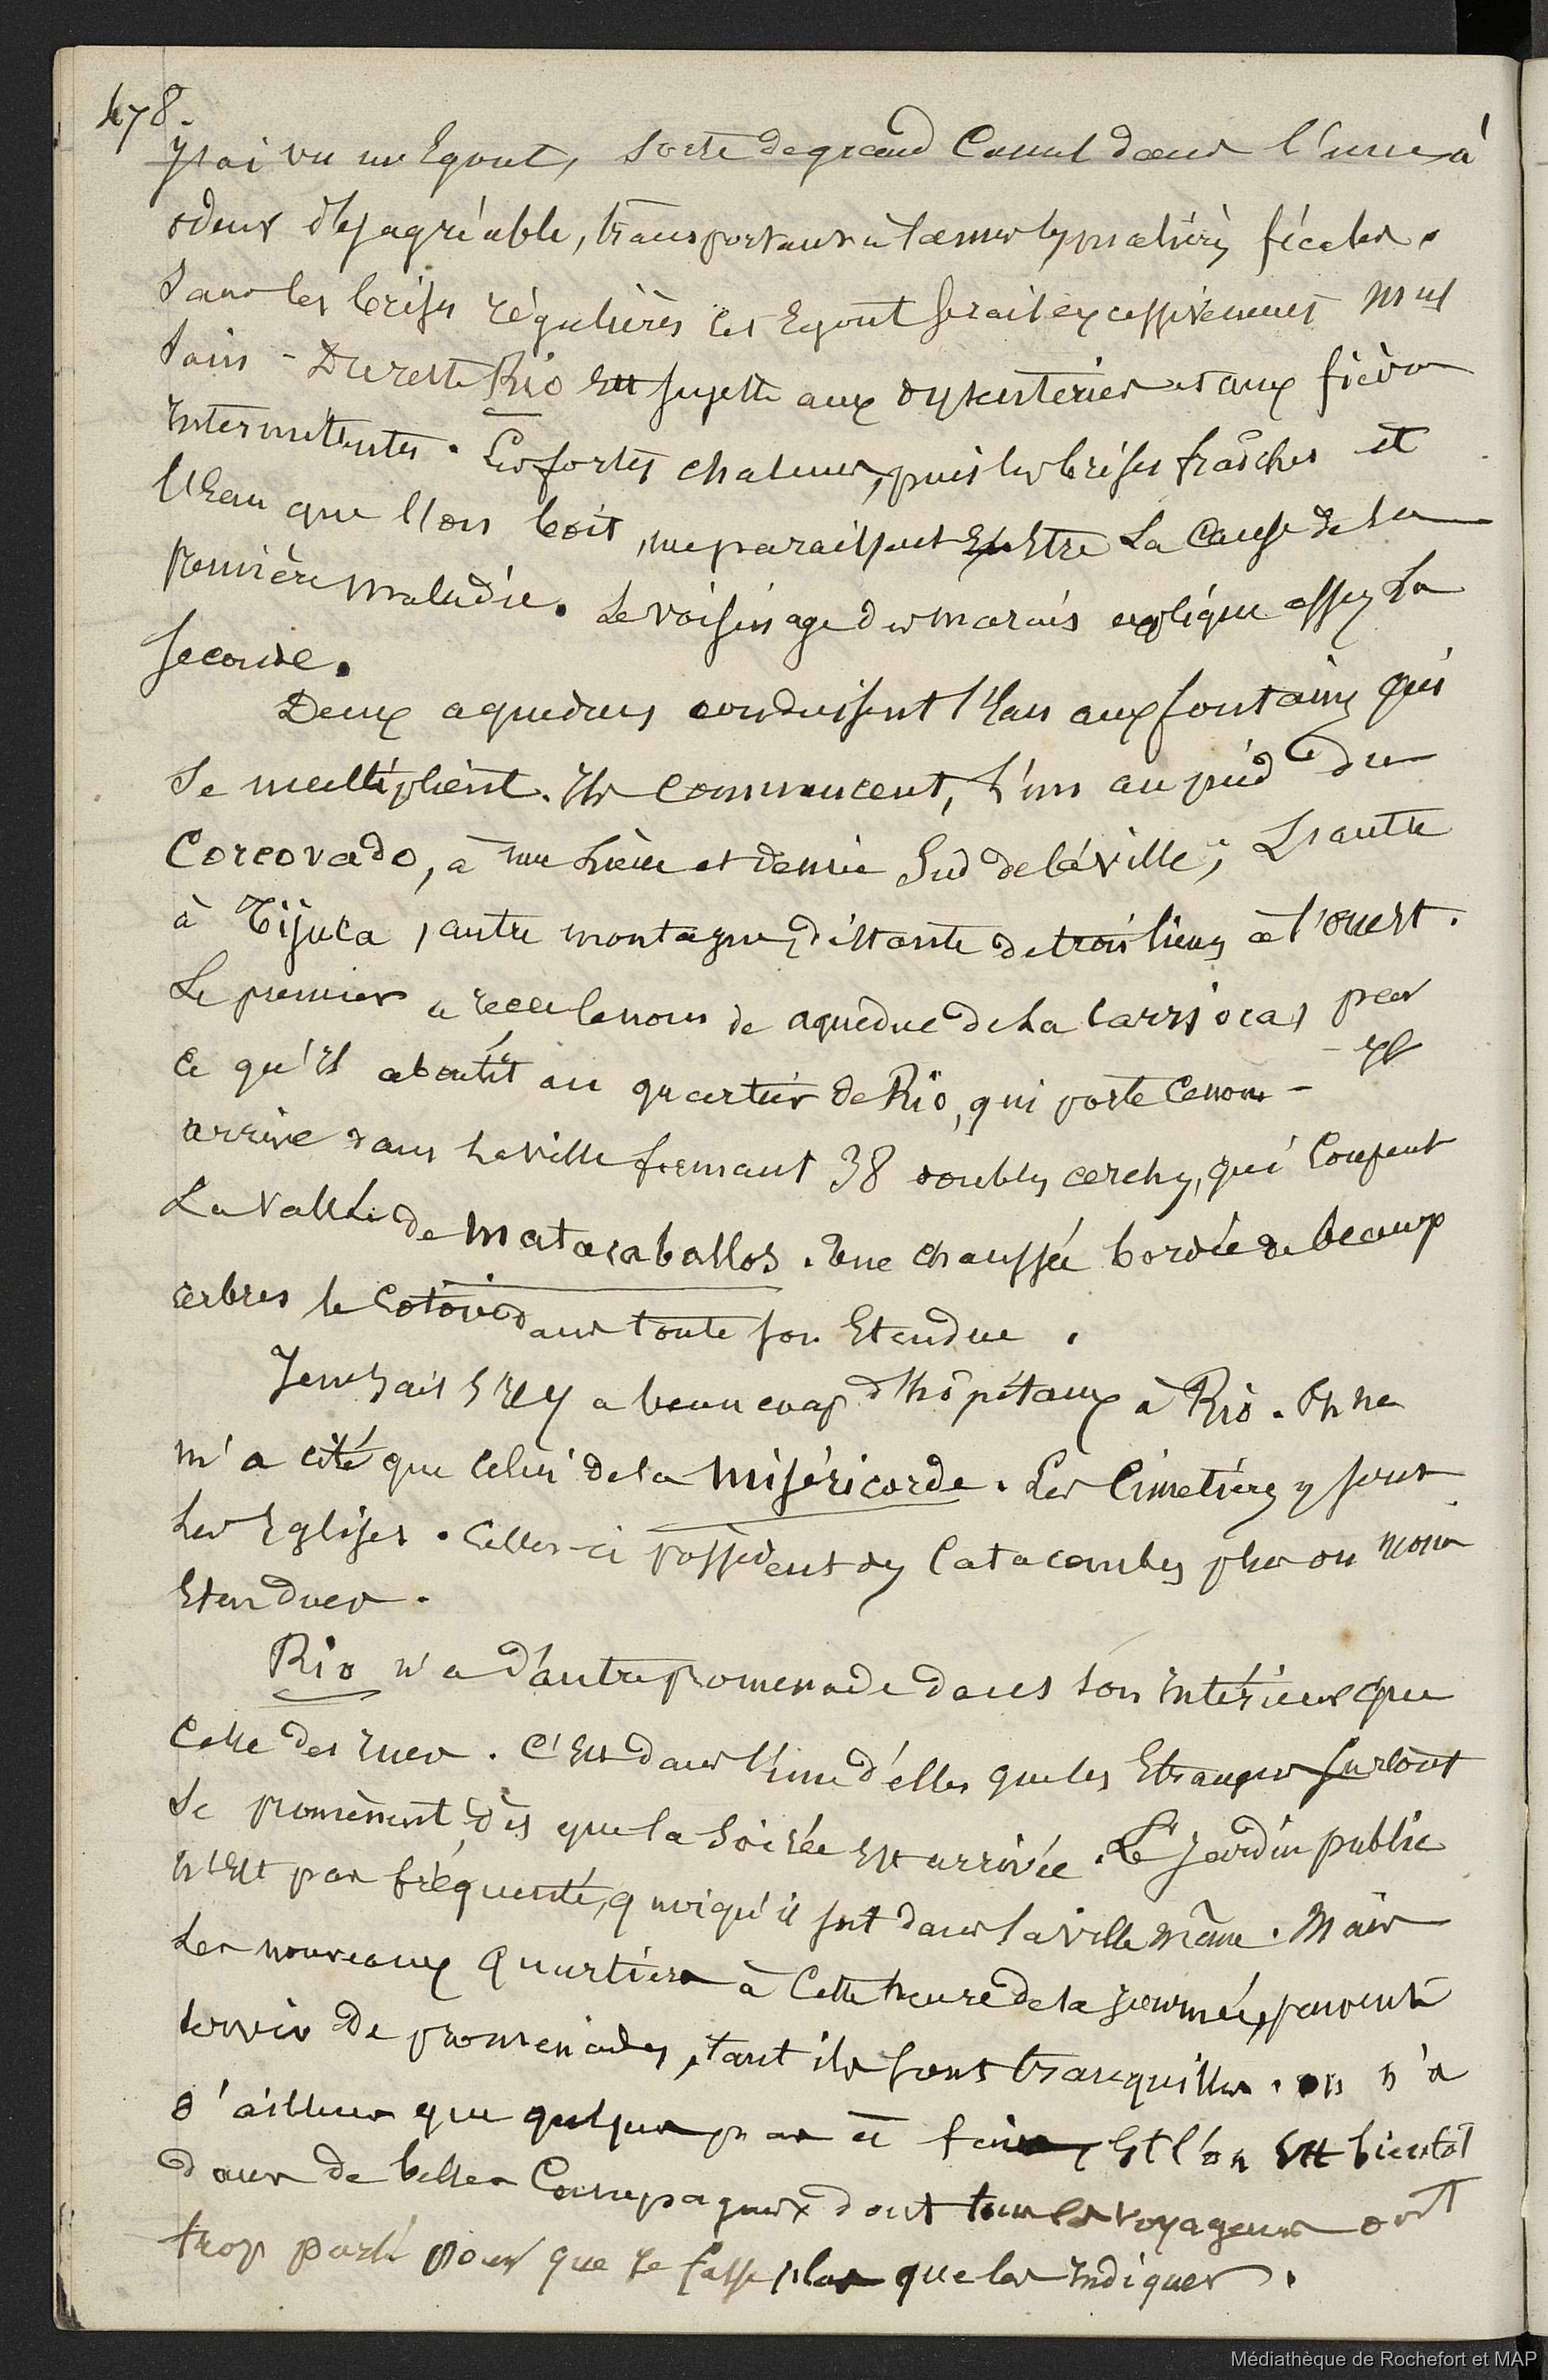 478.
j'ai vu un Egout, sorte de grand Canal dans l'une à
odeur désagréable, transportant à la mer les matières fécales.
Sans les brises régulières cet Egout serait excessivement mal
sain - Du reste Rio Est sujette aux dysenteries et aux fièvres
intermittentes. Les fortes chaleurs, puis les brises fraîches et
l'Eau que l'on boit, me paraissent Etre La Cause de La
première maladie. Le voisinage des marais explique assez La
seconde.
Deux aqueducs conduisent l'Eau aux fontaines qui
se multiplient. Ils commencent, L'un au pied du
Corcovado, à une Lieue et demie Sud de la ville; L'autre
à Tijuca, autre montagne, distante de trois lieues à l'ouest.
Le premier a reçu le nom de aqueduc de La Carriocas par
ce qu'il aboutit au quartier de Rio, qui porte ce nom - Il
arrive dans La ville formant 38 doubles cerches, qui Coupent
La vallée de Matacaballos. Une chaussée bordée de beaup
arbres le Cotoie dans toute son Etendue.
Je ne sais s'il y a beaucoup d'hôpitaux à Rio. On ne
m'a cité que Celui de la Miséricorde. Les Cimetières y sont
Les Eglises. Celles-ci possèdent des Catacombes plus ou moins
Etendues.
Rio n'a d'autre promenade dans son intérieur que
Celle des rues. C'est dans l'une d'elles que les Etrangers surtout
se promènent, dès que la soirée Est arrivée. Le Jardin public
n'Est pas fréquenté, quoiqu'il soit dans la ville même. Mais
Les nouveaux quartiers à Cette heure de la journée, peuvent
servir de promenades, tant ils sont tranquilles. on n'a
d'ailleurs que quelques pas à faire, Et l'on Est bientôt
dans de belles Campagnes dont tous les voyageurs ont
trop parlé pour que je fasse plus que les indiquer.
Médiathèque de Rochefort et MAP